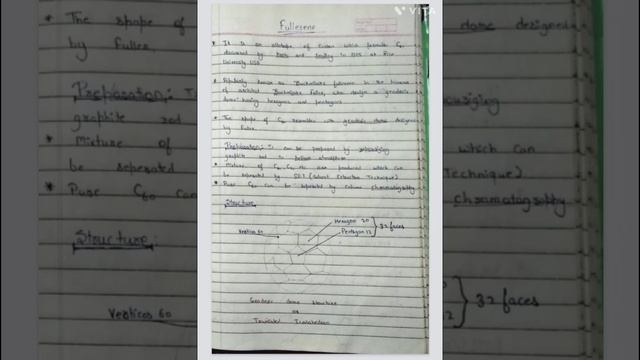 VITA
Fullerene
* It is an allotrope of carbon which formula C60
discovered by and Smalley in 1985 at Rice
University USA
* Popularly known as Buckminster fullerene in the honour
of architect Buckminster Fuller, who design a geodesic
dome having hexagons and pentagons
* The shape of C60 resembles with geodesic dome designed
by Fuller.
Preparation: It can be produced by vaporizing
graphite rod in helium atmosphere
* Mixture of C60, C70 etc are produced which can
be seperated by SET (Solvent Extraction Technique)
* Pure C60 can be seperated by column chromatography
Structure
Vertices 60
Hexagon 20
Pentagon 12
32 faces
Geodesic dome structure
or
Truncated Icosahedron
* The shape of
by Fuller
Preparation:
graphite rod
* mixture of
be seperated
* Pure C60 can
Structure:
Vertices 60
dome designed
which can
Technique)
chromatography
32 faces